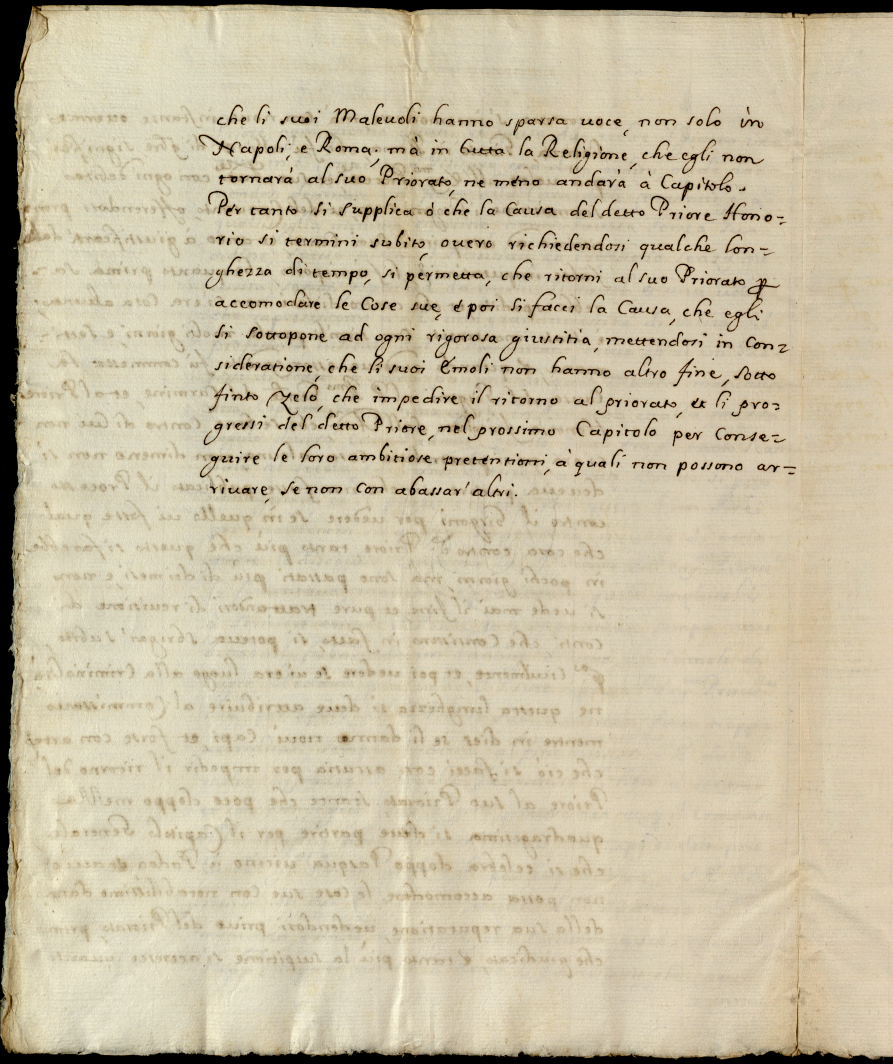 che li suoi Maleuoli hanno sparsa uoce, non solo in
Napoli, e Roma, mà in tutta la Religione, che egli non
tornarà al suo Priorato, ne meno andarà à Capitolo.
Per tanto si supplica ò che la Causa del detto Priore Hono=
rio si termini subito, ouero richiedendosi qualche lon=
ghezza di tempo, si permetta, che ritorni al suo Priorato ꝑ
accomodare le Cose sue, e poi si facci la Causa, che egli
si sottopone ad ogni rigorosa giustitia, mettendosi in Con=
sideratione, che li suoi Emoli non hanno altro fine, sotto
finto zelo, che impedire il ritorno al priorato, et li pro=
gressi del detto Priore, nel prossimo Capitolo per Conse=
guire le loro ambitiose pretentioni, à quali non possono ar=
riuare, se non con abassar' altri.